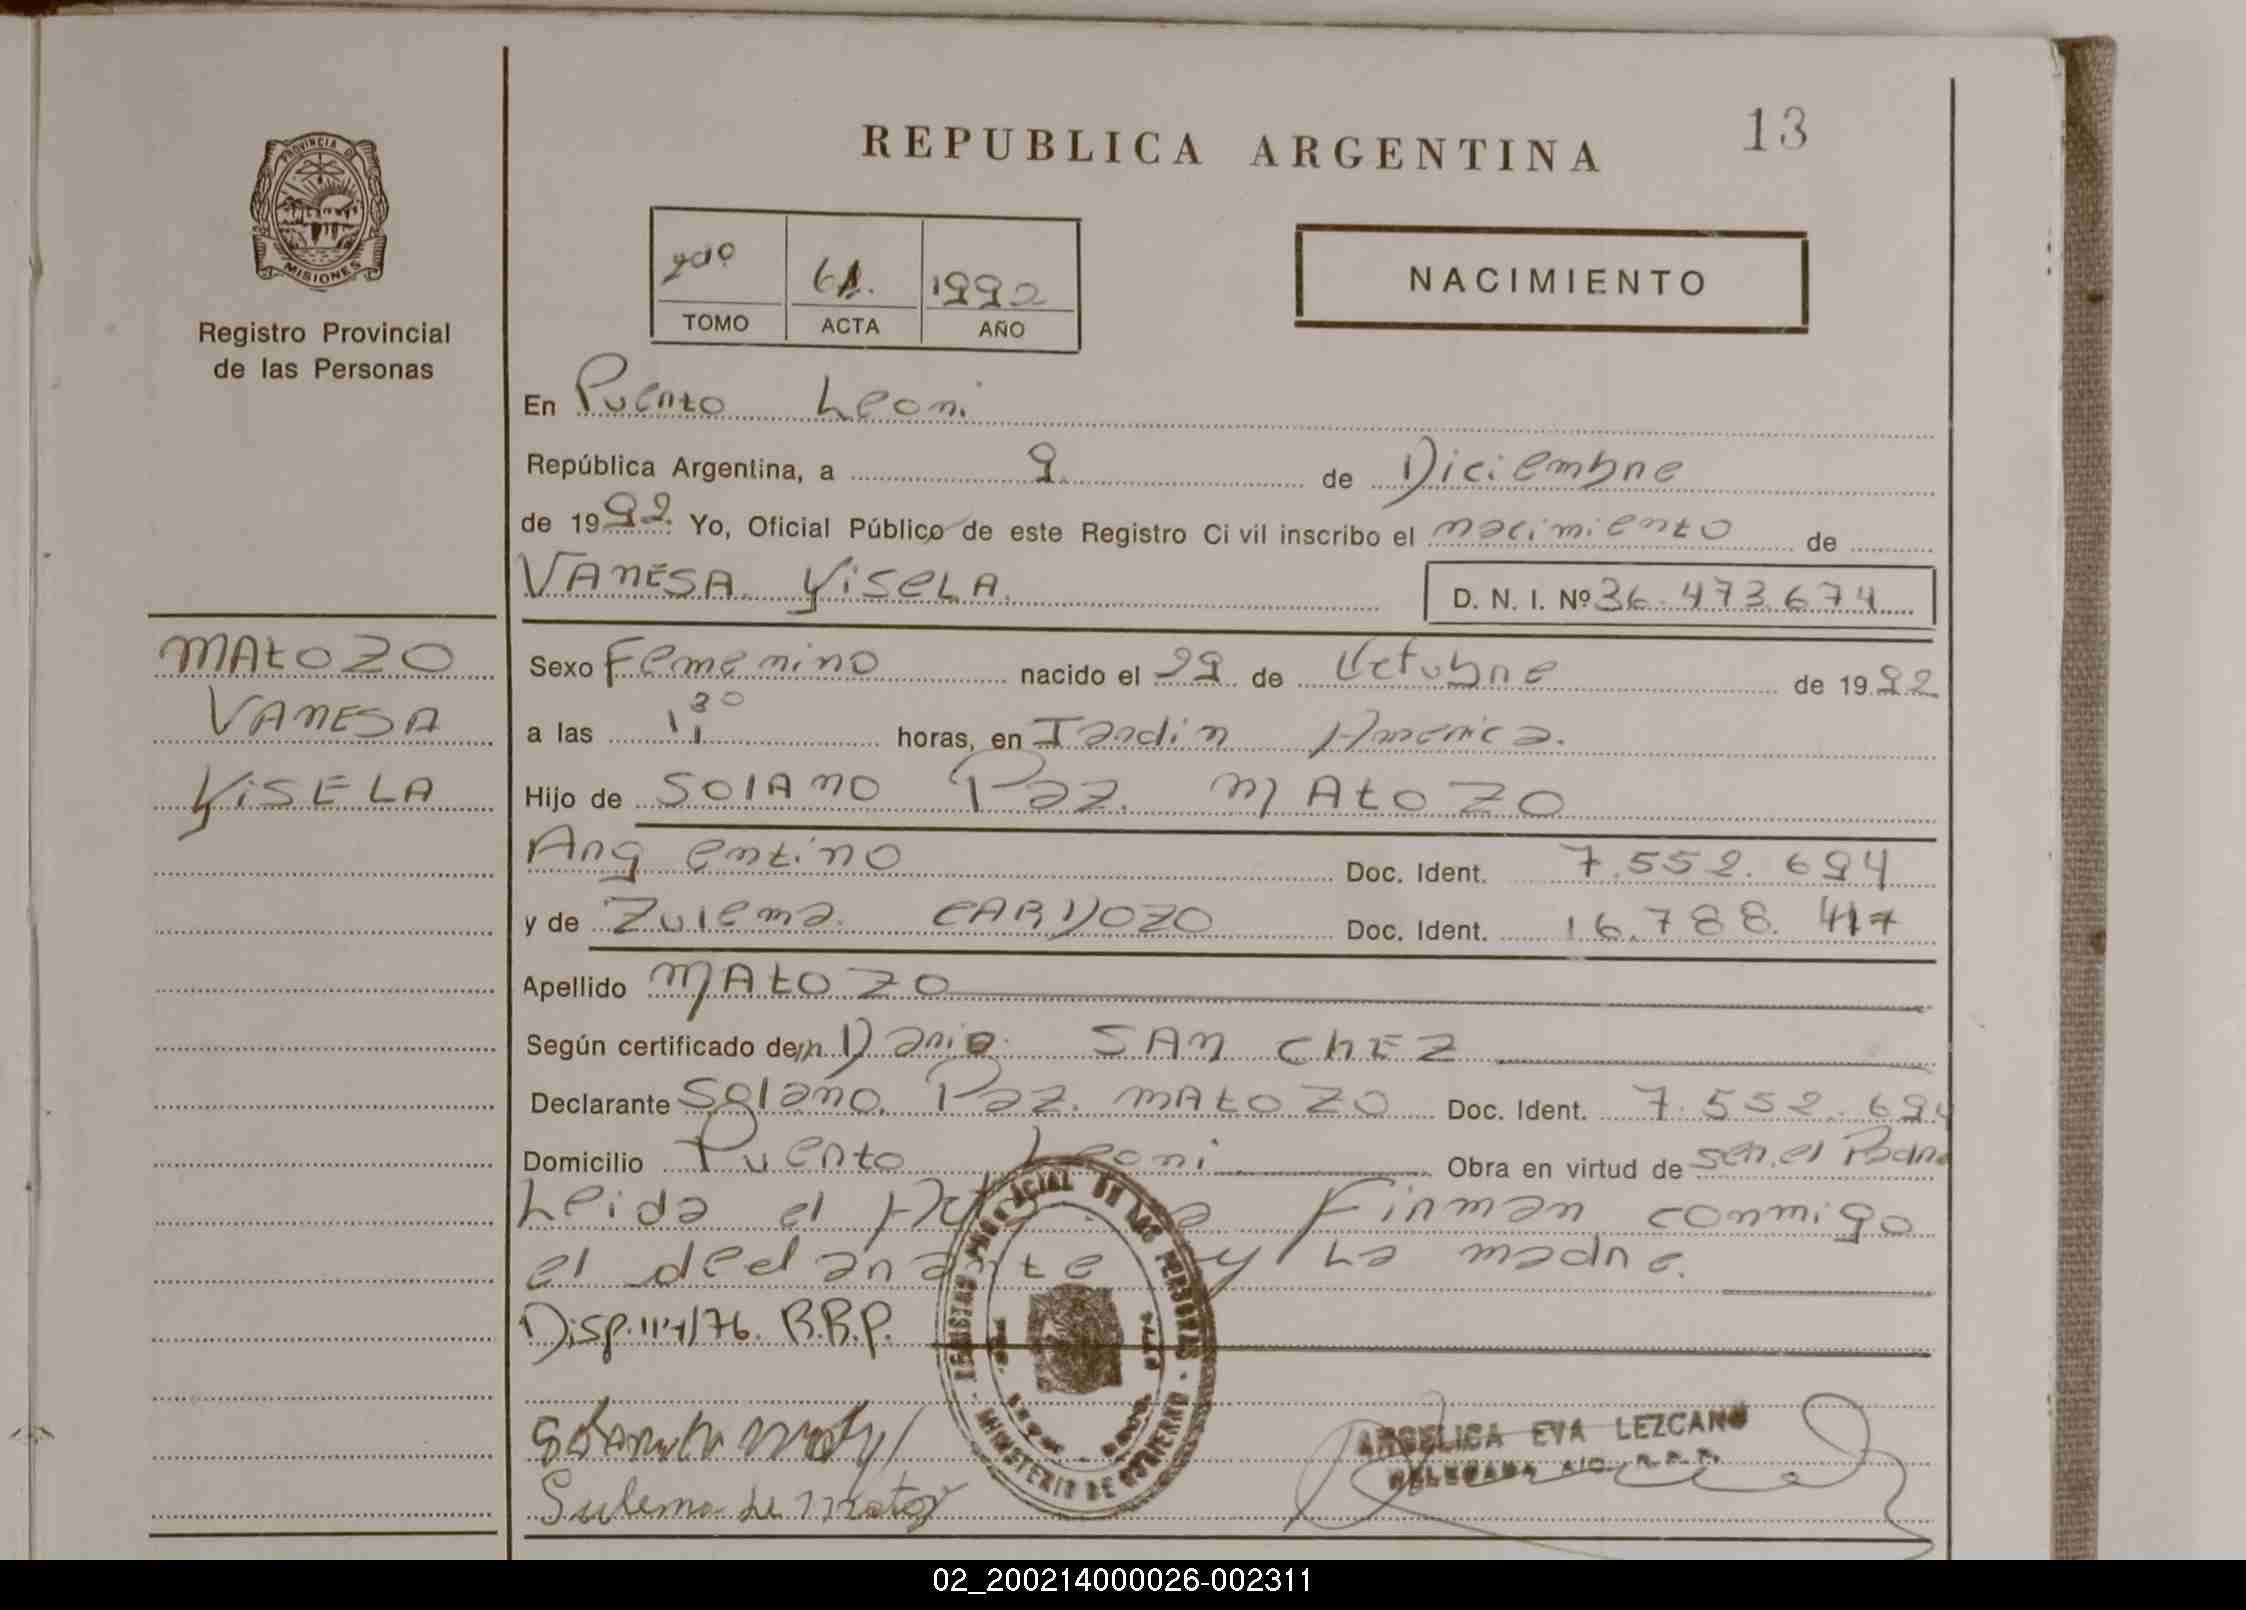 13
REPUBLICA ARGENTINA
PROVINCIA DE
MISIONES
Registro Provincial
de las Personas
2do 61. 1992
TOMO ACTA AÑO
NACIMIENTO
En Puerto Leoni
República Argentina, a 9 de Diciembre
de 1992. Yo, Oficial Público de este Registro Civil inscribo el nacimiento de
VANESA YISELA. D. N. I. Nº 36.473.674
MAtOZO
VANESA
YISELA
Sexo Femenino nacido el 29 de Octubre de 1992
a las 11 30 horas, en Jardin America.
Hijo de SOlANO Paz. MAtOZO
Argentino Doc. Ident. 7.552.694
y de Zulema. CARDOZO Doc. Ident. 16.788.417
Apellido MAtOZO
Según certificado de Dario SANChEZ
Declarante Solano. Paz. MAtOZO Doc. Ident. 7.552.694
Domicilio Puerto Leoni Obra en virtud de ser el Padre
Leida el Acta Firman conmigo
el declarante y La madre.
Disp. 114/76. R.R.P.
REGISTRO PROVINCIAL DE LAS PERSONAS
MINISTERIO DE GOBIERNO
Sulema de
ANGELICA EVA LEZCANO
DELEGADA A/C. R.P.P.
02_200214000026-002311